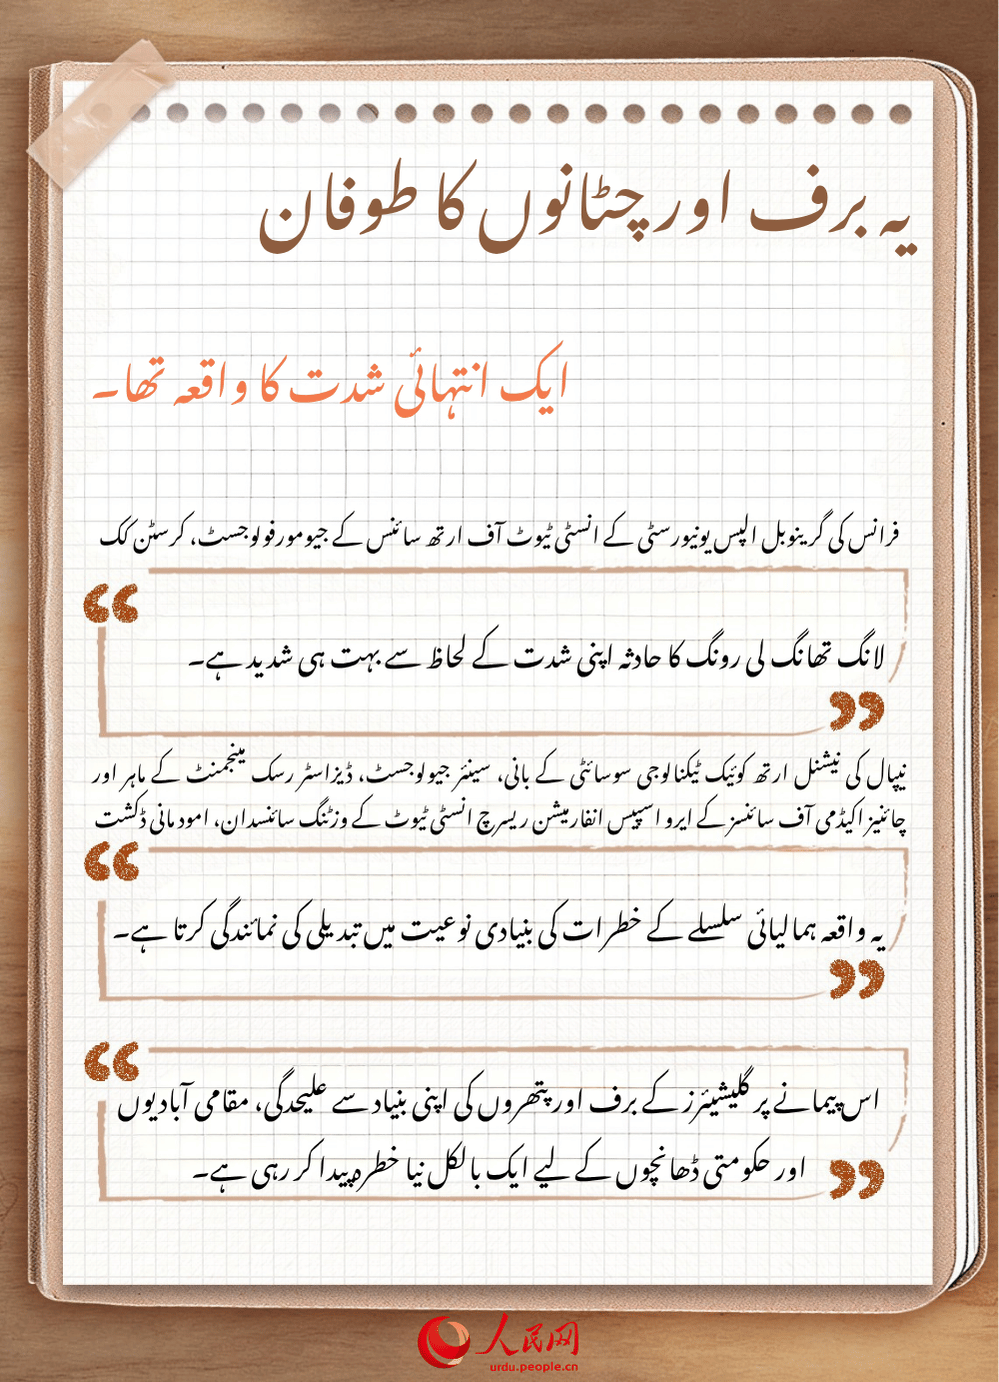 یہ برف اور چٹانوں کا طوفان
ایک انتہائی شدت کا واقعہ تھا۔
فرانس کی گرینوبل الپس یونیورسٹی کے انسٹی ٹیوٹ آف ارتھ سائنس کے جیومورفولوجسٹ، کرسٹن کک
لانگ تھانگ لی رونگ کا حادثہ اپنی شدت کے لحاظ سے بہت ہی شدید ہے۔
نیپال کی نیشنل ارتھ کوئیک ٹیکنالوجی سوسائٹی کے بانی، سینئر جیولوجسٹ، ڈیزاسٹر رسک مینجمنٹ کے ماہر اور
چائنیز اکیڈمی آف سائنسز کے ایرو اسپیس انفارمیشن ریسرچ انسٹی ٹیوٹ کے وزٹنگ سائنسدان، امود مانی ڈکشت
یہ واقعہ ہمالیائی سلسلے کے خطرات کی بنیادی نوعیت میں تبدیلی کی نمائندگی کرتا ہے۔
اس پیمانے پر گلیشیئرز کے برف اور پتھروں کی اپنی بنیاد سے علیحدگی، مقامی آبادیوں
اور حکومتی ڈھانچوں کے لیے ایک بالکل نیا خطرہ پیدا کر رہی ہے۔
人民网
urdu.people.cn